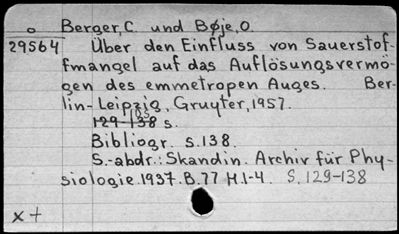 o Berger, C. und Bøje, O.
29564 Über den Einfluss von Sauerstof-
fmangel auf das Auflösungsvermö-
gen des emmetropen Auges. Ber-
lin-Leipzig, Gruyter, 1957.
129-138 s.
Bibliogr. s.138.
S.-abdr.: Skandin. Archiv für Phy-
siologie.1937.B.77 H.1-4. S.129-138
x +